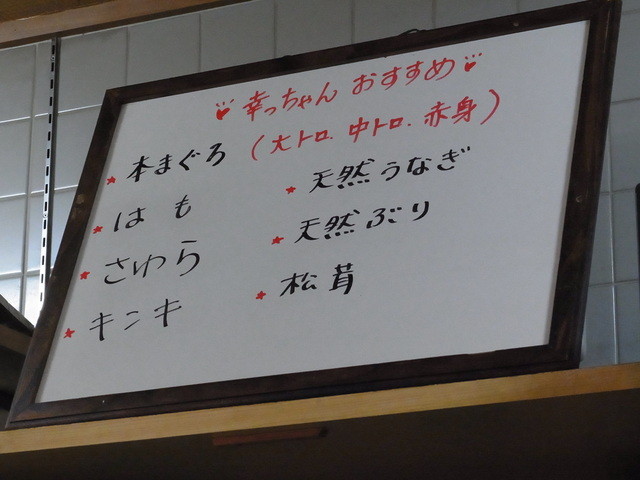 幸っちゃん おすすめ
★本まぐろ (大トロ.中トロ.赤身)
★はも
★さわら
★キンキ
★天然うなぎ
★天然ぶり
★松茸